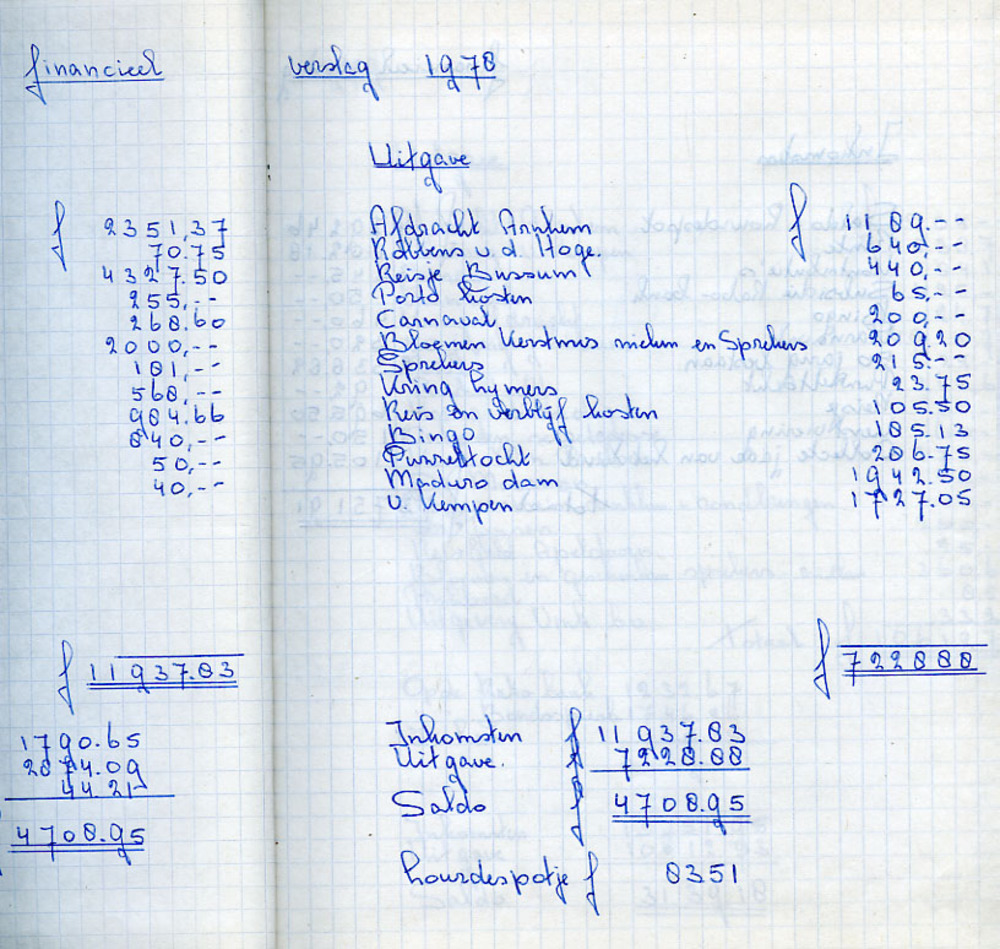 financieel verslag 1978
Uitgave
f 2351,37 Afdracht Arnhem f 1189.--
70.75 Robbens v.d. Hoge. 640,--
4327.50 Reisje Bussum 440,--
255,-- Porto kosten 65,--
268.60 Carnaval 200,--
2000,-- Bloemen Kerstmis nichen en Sprekers 209.20
181,-- Sprekers 215.--
568,-- Kring hymers 23.75
984.66 Reis en Verblijf kosten 105.50
840,-- Bingo 185.13
50,-- Puzzeltocht 286.75
40,-- Maduro dam 1942.50
v. Kempen 1727.05
f 11937.83 f 722888
1790.65 Inkomsten f 11937.83
2874.09 Uitgave. f 7228.88
44.21
Saldo f 4708.95
4708.95
hourdespotje f 8351